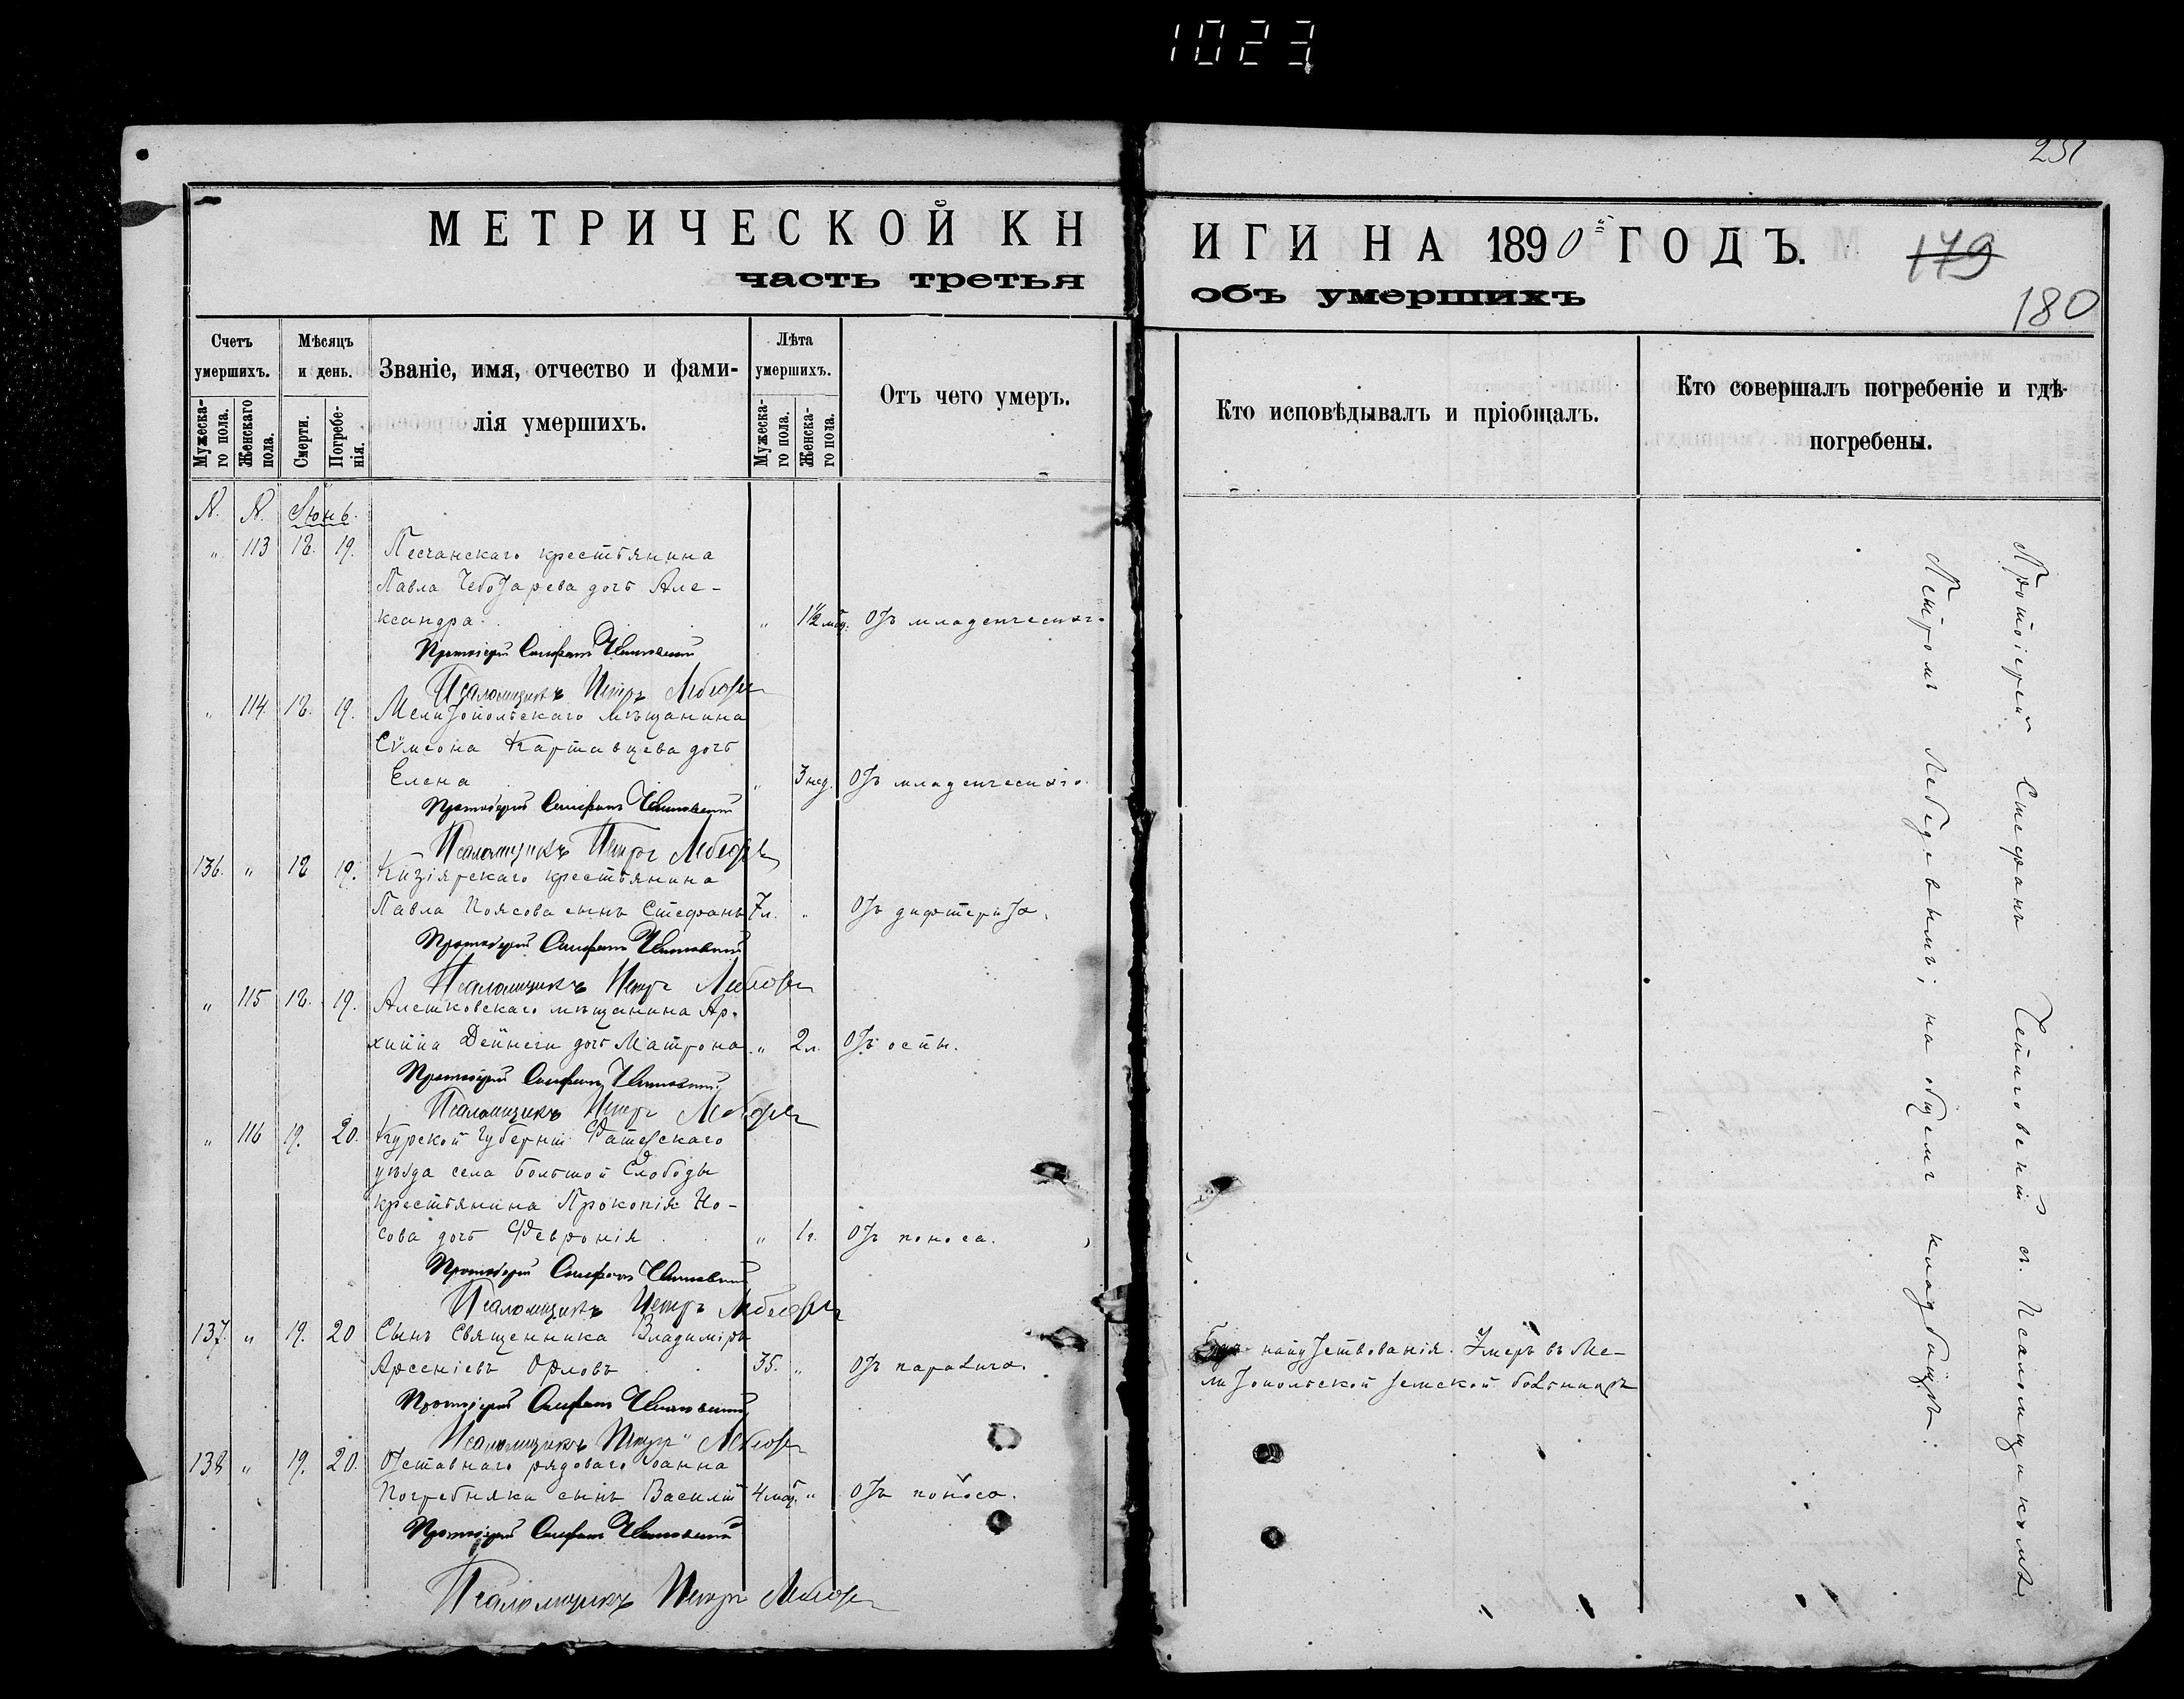 1023
251
МЕТРИЧЕСКОЙ КНИГИ НА 1890й ГОДЪ.
часть третья объ умершихъ
179
180
Счетъ умершихъ.
Мужескаго пола.
Женскаго пола.
Мѣсяцъ и день.
Смерти.
Погребенія.
Званіе, имя, отчество и фамилія умершихъ.
Лѣта умершихъ.
Мужескаго пола.
Женскаго пола.
Отъ чего умеръ.
Кто исповѣдывалъ и пріобщалъ.
Кто совершалъ погребеніе и гдѣ погребены.
N. N. Іюнь.
„ 113 18. 19. Песчанскаго крестьянина
Павла Чеботарева дочь Але-
ксандра. „ 1½ мѣс. Отъ младенческаго
Протоіерей Стефанъ
Псаломщикъ Петръ Лебедевъ
„ 114 18. 19. Мелитопольскаго мѣщанина
Сѵмеона Картавцева дочь
Елена „ 3 нед. Отъ младенческаго.
Протоіерей Стефанъ
Псаломщикъ Петръ Лебедевъ
136. „ 18 19. Кизіярскаго крестьянина
Павла Поясова сынъ Стефанъ 7 л. „ Отъ дифтерита.
Протоіерей Стефанъ
Псаломщикъ Петръ Лебедевъ
„ 115 18. 19. Алешковскаго мѣщанина Ар-
хиппа Дейнеги дочь Матрона „ 2 л. Отъ оспы.
Протоіерей Стефанъ
Псаломщикъ Петръ Лебедевъ
„ 116 19. 20. Курской губерніи Фатежскаго
уѣзда села Большой Слободы
крестьянина Прокопія Но-
сова дочь Февронія „ 1 г. Отъ поноса.
Протоіерей Стефанъ
Псаломщикъ Петръ Лебедевъ
137. „ 19. 20 Сынъ Священника Владиміръ
Арсеніевъ Орловъ 35. „ Отъ паралича.
Безъ напутствованія. Умеръ въ Ме-
литопольской земской больницѣ
Протоіерей Стефанъ
Псаломщикъ Петръ Лебедевъ
138 „ 19. 20. Отставнаго рядоваго Іоанна
Погребняка сынъ Василій 4 мѣс. „ Отъ поноса.
Протоіерей Стефанъ
Псаломщикъ Петръ Лебедевъ
Протоіерей Стефанъ съ Псаломщикомъ
Петромъ Лебедевымъ; на общемъ кладбищѣ.